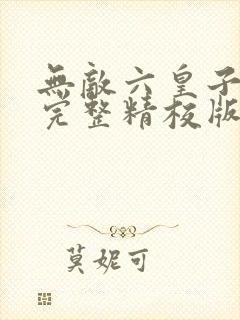 無敵六皇子
完整精校版
莫妮可